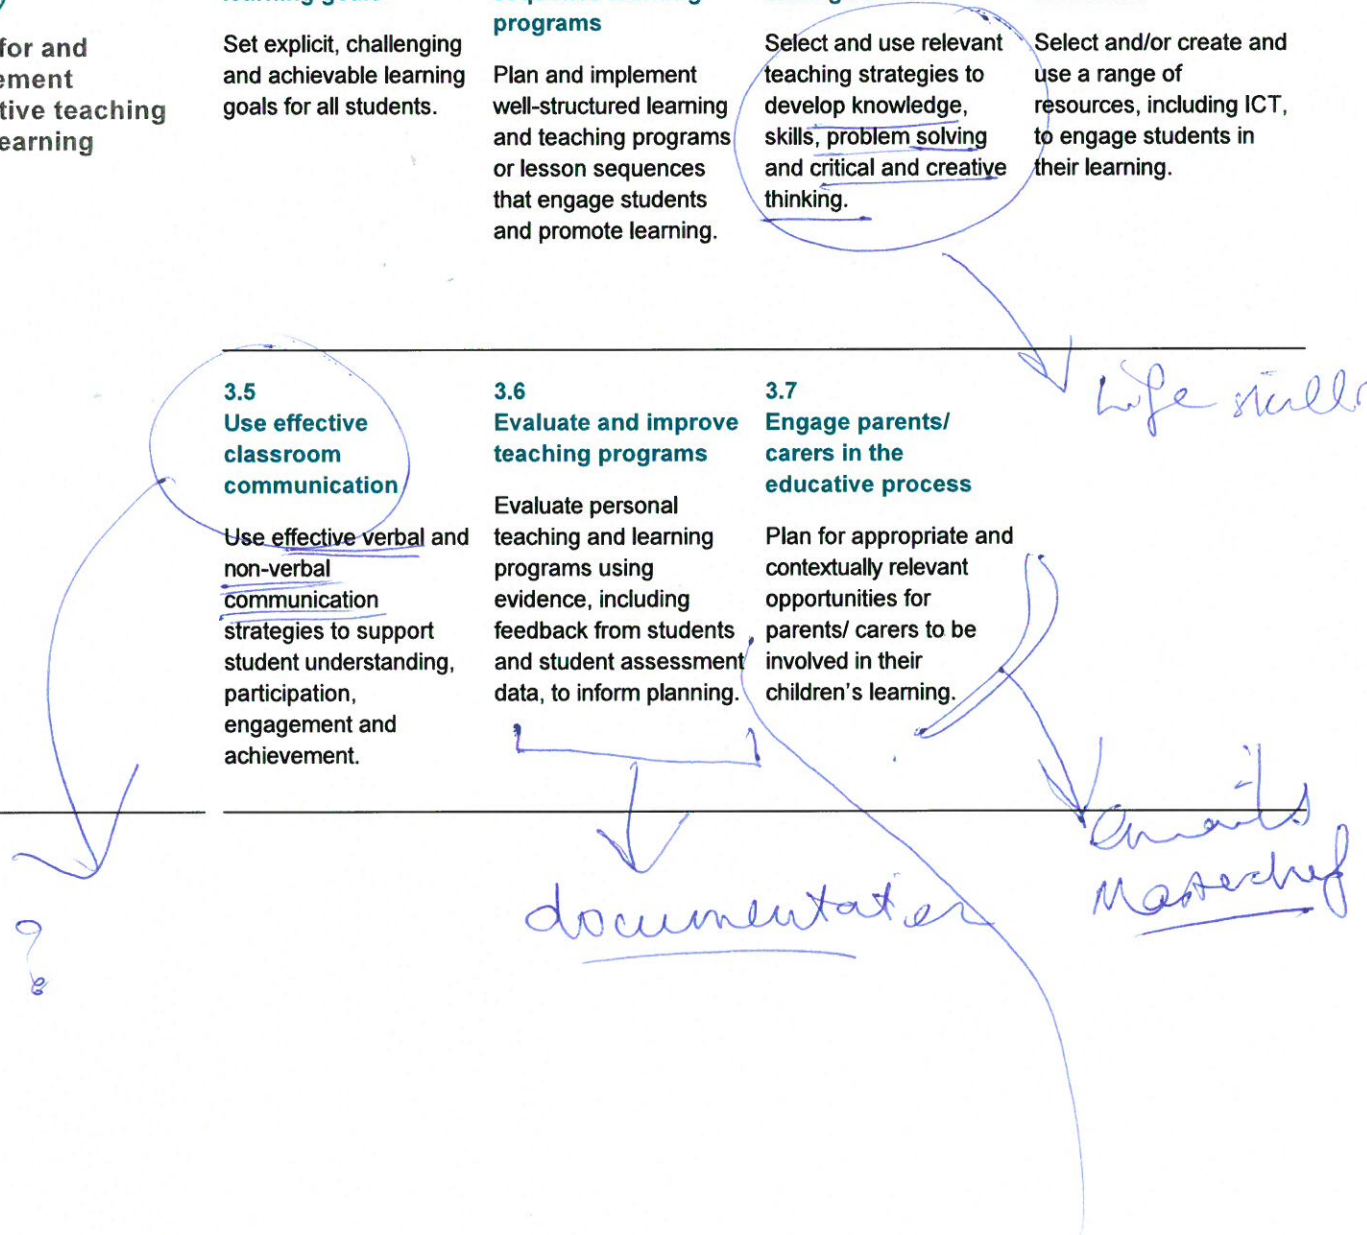 for and
ement
tive teaching
earning
Set explicit, challenging
and achievable learning
goals for all students.
programs
Plan and implement
well-structured learning
and teaching programs
or lesson sequences
that engage students
and promote learning.
Select and use relevant
teaching strategies to
develop knowledge,
skills, problem solving
and critical and creative
thinking.
Select and/or create and
use a range of
resources, including ICT,
to engage students in
their learning.
Life skills
3.5
Use effective
classroom
communication
Use effective verbal and
non-verbal
communication
strategies to support
student understanding,
participation,
engagement and
achievement.
?
3.6
Evaluate and improve
teaching programs
Evaluate personal
teaching and learning
programs using
evidence, including
feedback from students
and student assessment
data, to inform planning.
documentation
3.7
Engage parents/
carers in the
educative process
Plan for appropriate and
contextually relevant
opportunities for
parents/ carers to be
involved in their
children's learning.
emails
Masterchef